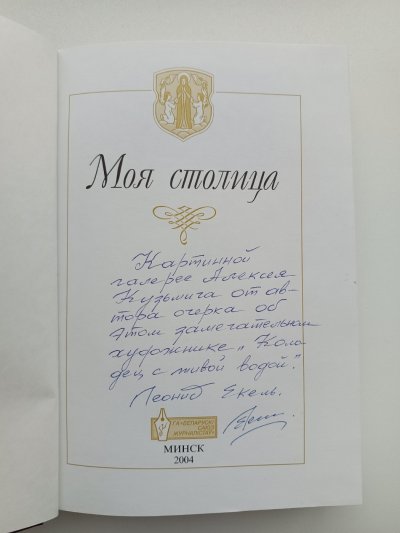 Моя столица
Картинной
галерее Алексея
Кузьмича от ав-
тора очерка об
этом замечательном
художнике „Коло
дец с живой водой".
Леонид Екель.
ГА «БЕЛАРУСКІ
САЮЗ
ЖУРНАЛІСТАЎ»
МИНСК
2004